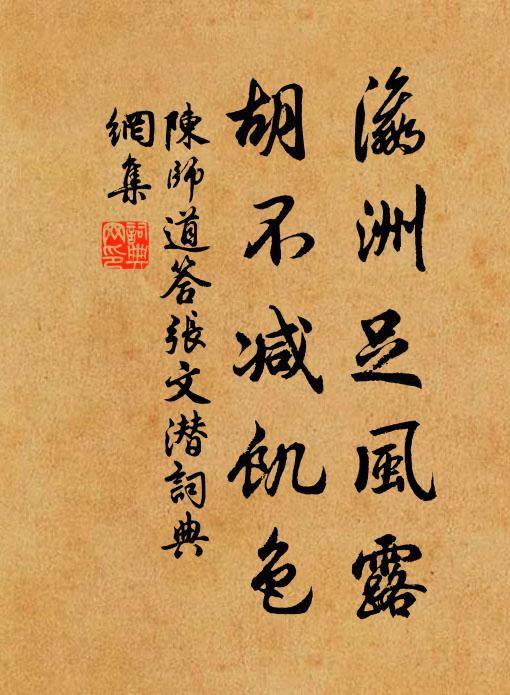 瀛洲足風露
胡不减飢色
陳師道答張文潛詞典
網集
詞典
网印